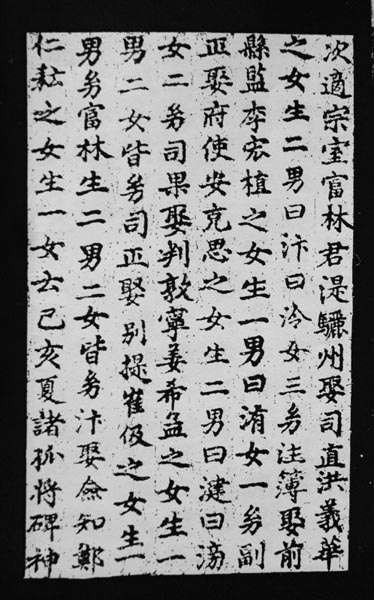 次適宗室富林君湜驪州娶司直洪義華
之女生二男曰汴曰泠女三幼注簿娶前
縣監李宏植之女生一男曰洧女一幼副
正娶府使安克思之女生二男曰湕曰滂
女二幼司果娶判敦寧姜希孟之女生一
男二女皆幼司正娶別提崔伋之女生一
男幼富林生二男二女皆幼汴娶僉知鄭
仁耘之女生一女云己亥夏諸孤將碑神